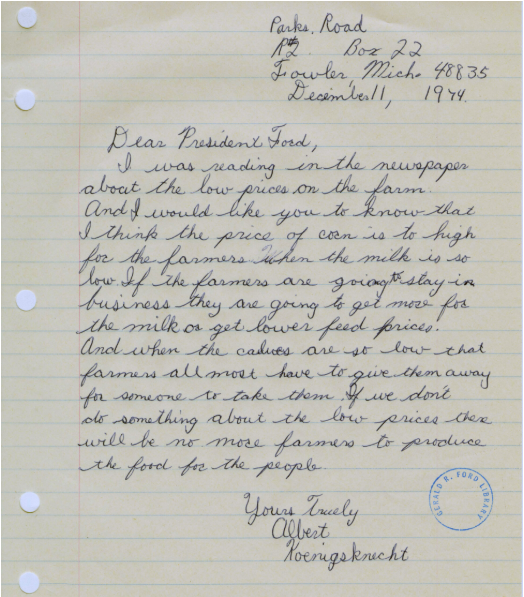 Parks, Road
R#2. Box 22
Fowler, Mich. 48835
December 11, 1974.
Dear President Ford,
I was reading in the newspaper
about the low prices on the farm.
And I would like you to know that
I think the price of corn is to high
for the farmers When the milk is so
low. If the farmers are going to stay in
business they are going to get more for
the milk or get lower feed prices.
And when the calves are so low that
farmers all most have to give them away
for someone to take them. If we don't
do something about the low prices there
will be no more farmers to produce
the food for the people.
Yours Truely
Albert
Koenigsknecht
GERALD R. FORD LIBRARY